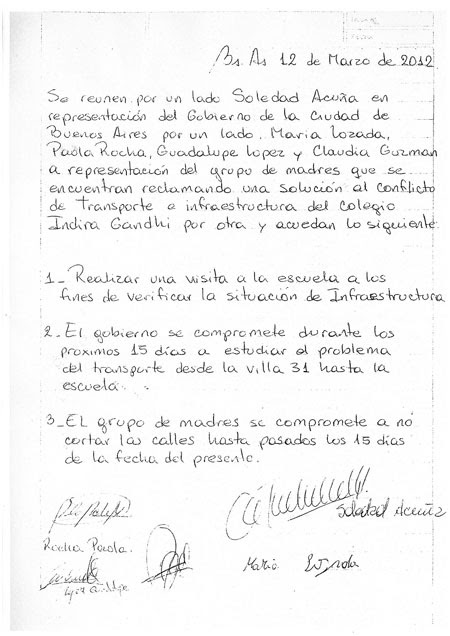 Bs. As 12 de Marzo de 2012
Se reunen por un lado Soledad Acuña en
representación del Gobierno de la Ciudad de
Buenos Aires por un lado, Maria Lozada,
Paola Rocha, Guadalupe Lopez y Claudia Guzman
a representación del grupo de madres que se
encuentran reclamando una solución al conflicto
de Transporte e infraestructura del colegio
Indira Gandhi por otra y acuedan lo siguiente
1_ Realizar una visita a la escuela a los
fines de verificar la situación de Infraestructura
2_ El gobierno se compromete durante los
proximos 15 días a estudiar el problema
del transporte desde la villa 31 hasta la
escuela.
3_ EL grupo de madres se compromete a nó
cortar las calles hasta pasados los 15 días
de la fecha del presente.
Soledad Acuña
Rocha Paola.
Maria